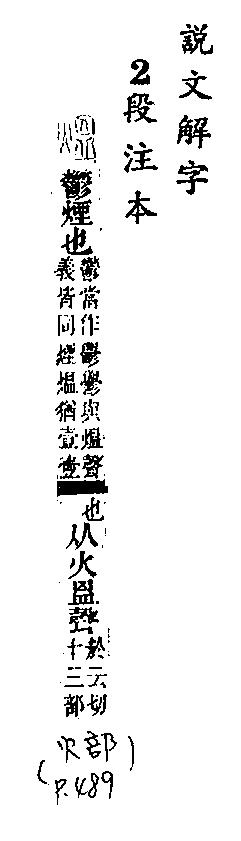 說文解字
2段注本
熅
鬱煙也
鬱當作鬱鬱與熅聲
義皆同煙熅猶壹壺
也
从火𥁕聲
於云切
十三部
(火部)
P.489